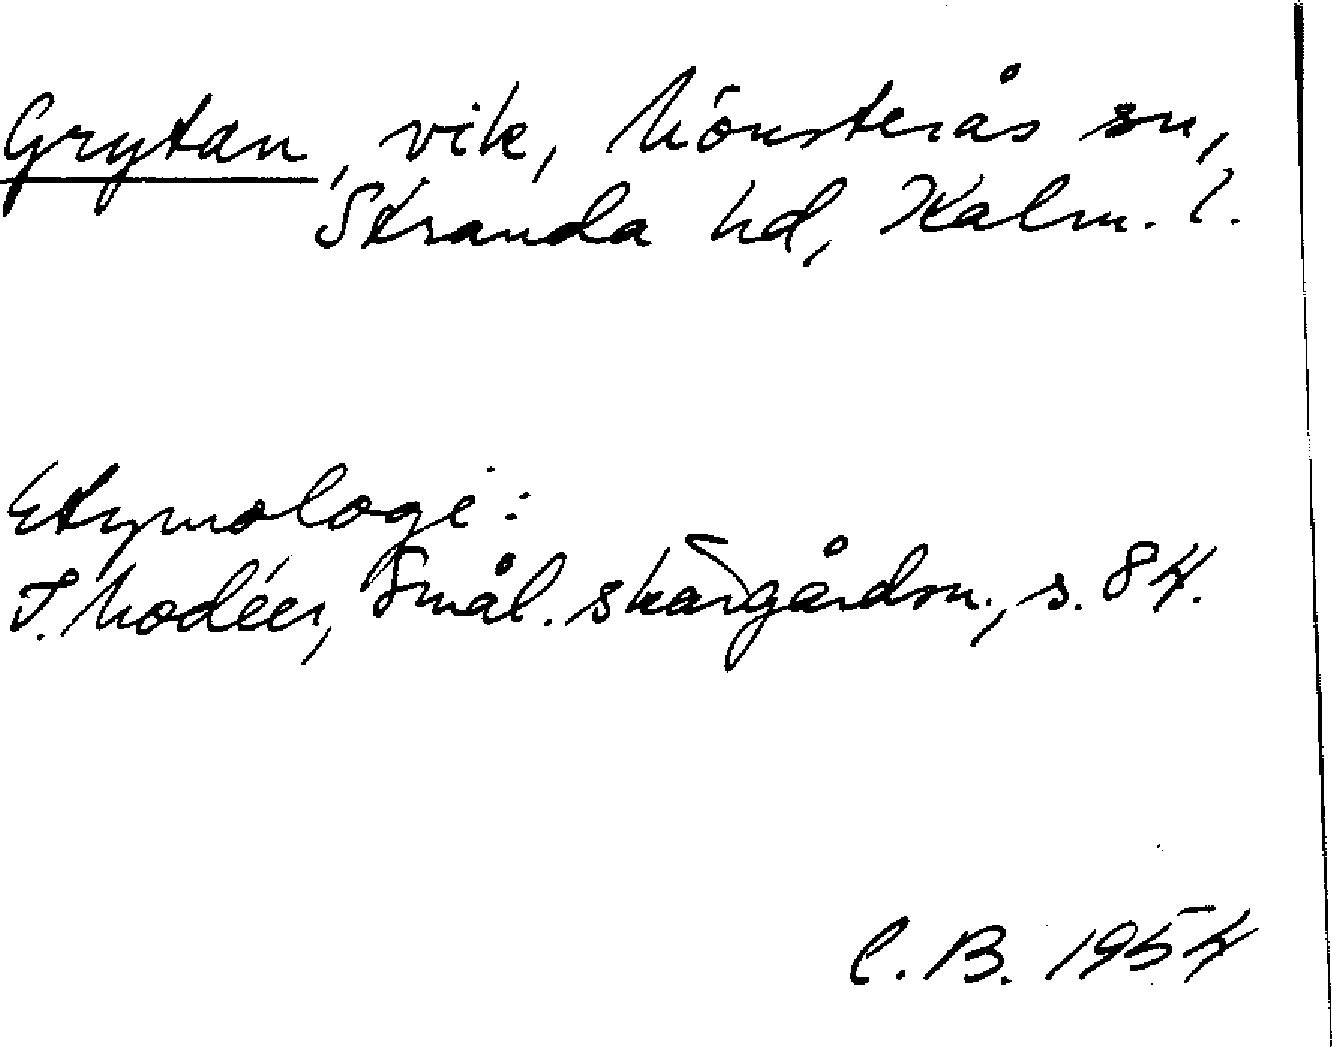 Grytan, vik, Mönsterås sn,
Stranda hd, Kalm. l.
Etymologi:
I. Modéer, Smål. skärgårdsn., s. 84.
C. B. 1954